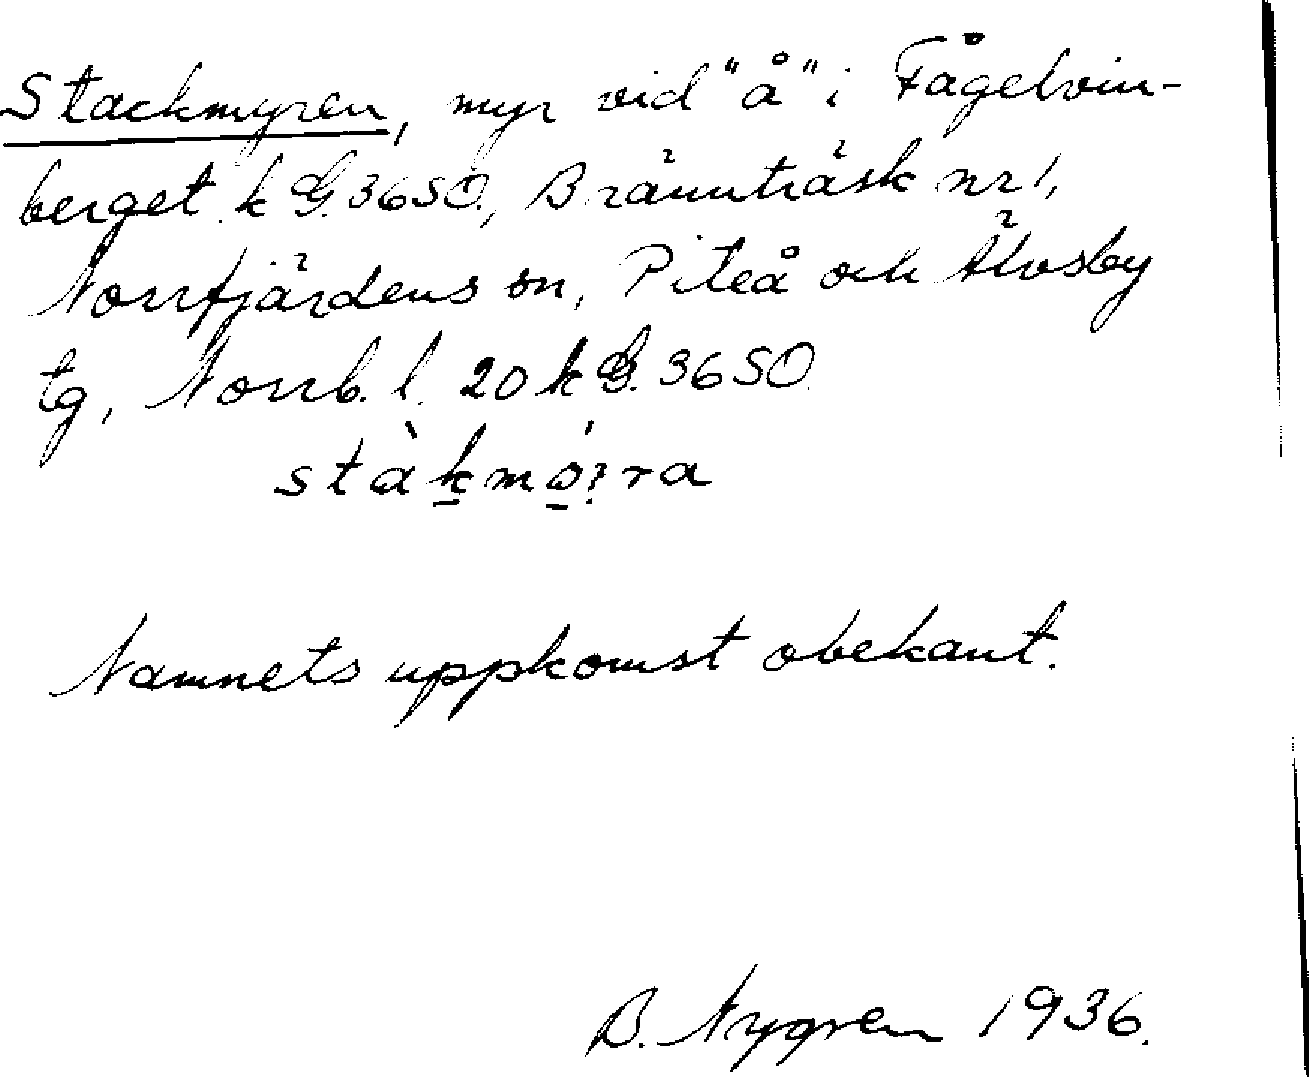 Stackmyren, myr vid "å" i Fågelvin-
berget k G. 36SO., Bränträsk nr 1,
Norrfjärdens sn, Piteå och Älvsby
tg, Norrb. l. 20 k G. 36SO.
Namnets uppkomst obekant.
B. Nygren 1936.